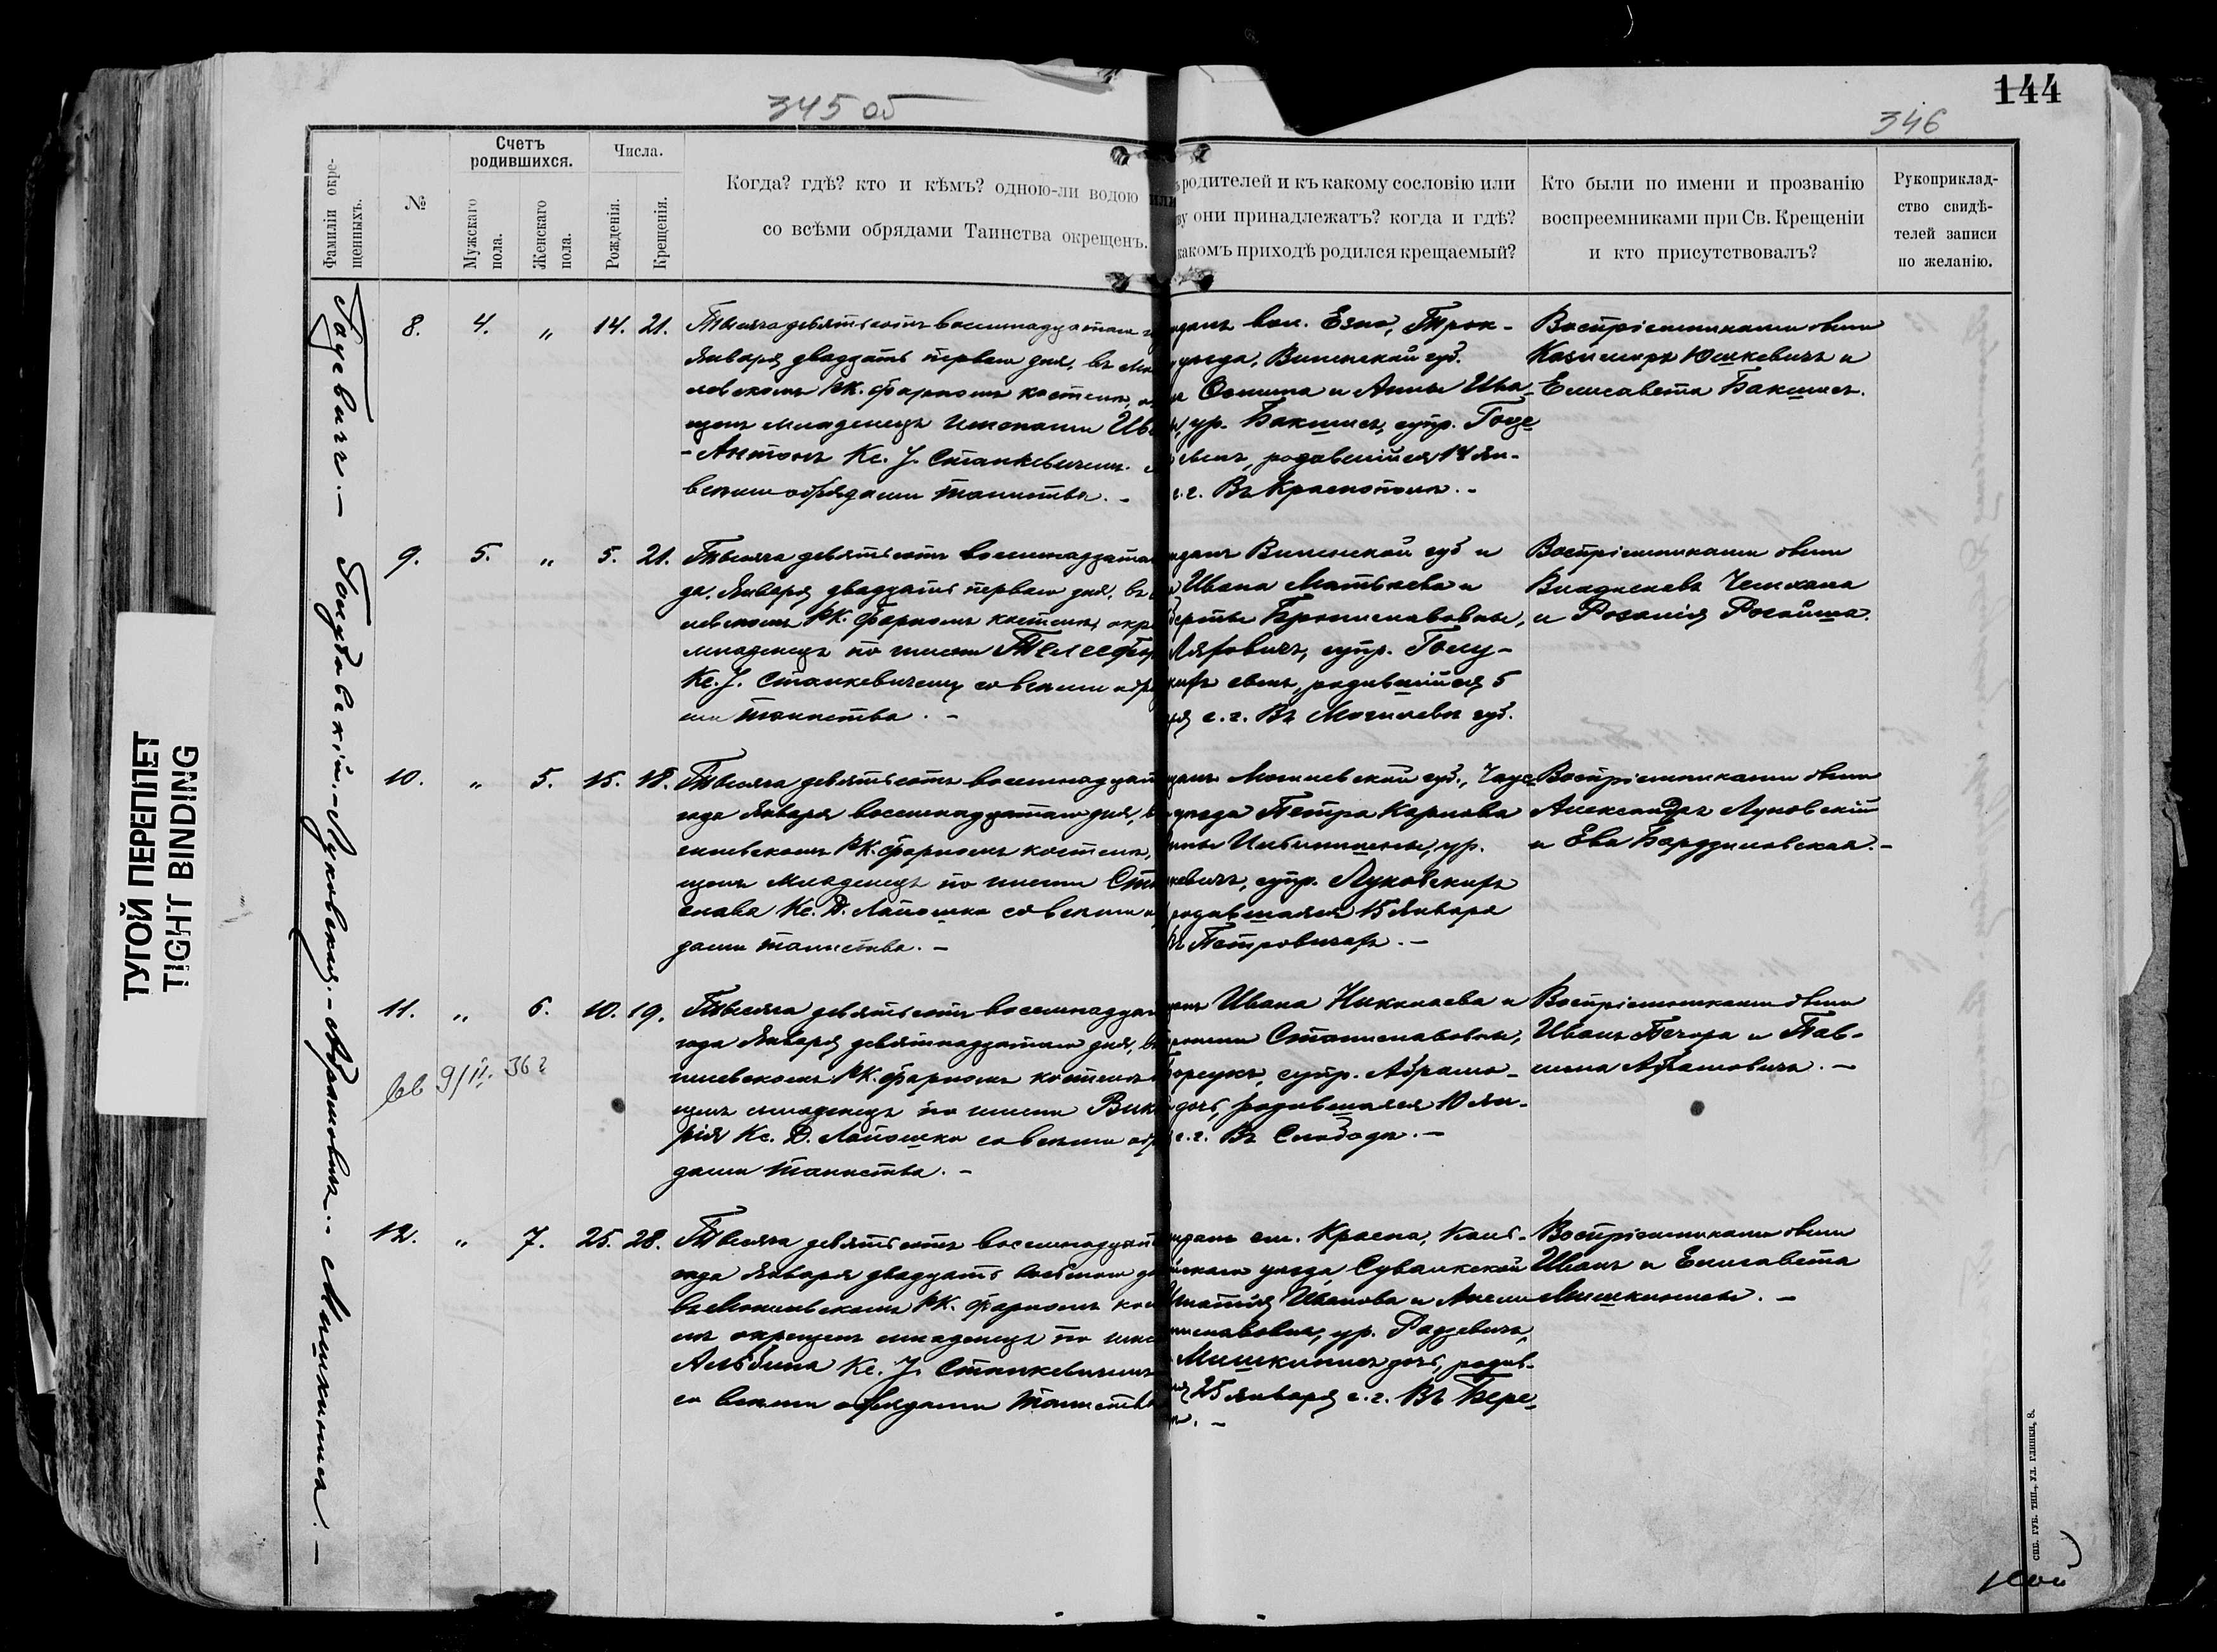 144
345 об
346
ТУГОЙ ПЕРЕПЛЕТ
TIGHT BINDING
Фамиліи окре-
щенныхъ.
№
Счетъ
родившихся.
Мужскаго
пола.
Женскаго
пола.
Числа.
Рожденія.
Крещенія.
Когда? гдѣ? кто и кѣмъ? одною-ли водою или
со всѣми обрядами Таинства окрещенъ.
родителей и къ какому сословію или
ву они принадлежатъ? когда и гдѣ?
какомъ приходѣ родился крещаемый?
Кто были по имени и прозванію
воспреемниками при Св. Крещеніи
и кто присутствовалъ?
Рукоприклад-
ство свидѣ-
телей записи
по желанію.
8. 4. „ 14. 21.
Тысяча девятьсотъ восемнадцатаго
Января двадцать перваго дня, въ Мо
левскомъ РК. фарномъ костелѣ,
щенъ младенецъ именами Ив
-Антонъ Кс. J. Станкевичемъ
всѣми обрядами таинства. -
вол. Езно, Трок-
уѣзда, Виленской губ.
Осипа и Анны Ива-
ур. Бакшисъ, супр. Гоце-
сынъ, родившійся 14 Ян-
с.г. Въ Краснополѣ. -
Воспріемниками были
Казимиръ Юшкевичъ и
Елисавета Бакшисъ.
9. 5. „ 5. 21.
Тысяча девятьсотъ восемнадцата
да, Января двадцать перваго дня, въ
левскомъ РК. фарномъ костелѣ, окре
младенецъ по имени Телесфор
Кс. J. Станкевичемъ со всѣми обр
ми таинства. -
Виленской губ и
Ивана Матвѣева и
Брониславовны,
супр. Голу-
сынъ, родившійся 5
с.г. Въ Могилевѣ губ.
Воспріемниками были
Владиславъ
и Розалія
10. „ 5. 15. 18.
Тысяча девятьсотъ восемнадцат
года Января восемнадцатаго дня, в
гилевскомъ РК. фарномъ костелѣ,
щенъ младенецъ по имени Ста
слава Кс. Д. Лапошко со всѣми
дами таинства. -
Могилевской губ., Чаус-
уѣзда Петра Карлова
ур.
кевичъ, супр. Луковскихъ
родившаяся 15 Января
въ Петровичахъ. -
Воспріемниками были
Александръ Луковскій
и Ева Бардзиловская. -
11. „ 6. 10. 19.
Тысяча девятьсотъ восемнадцат
года Января девятнадцатаго дня, въ
гилевскомъ РК. фарномъ костелѣ
щенъ младенецъ по имени Викто
рія Кс. Д. Лапошко со всѣми обр
дами таинства. -
Ивана Николаева и
Станиславовны,
супр. Абрамо-
дочь, родившаяся 10 Ян-
с.г. Въ Слободѣ. -
Воспріемниками были
Иванъ Печора и Пав-
лина Абрамовичъ. -
9/II. 36 г
12. „ 7. 25. 28.
Тысяча девятьсотъ восемнадцат
года Января двадцать восьмого дн
въ Могилевскомъ РК. фарномъ кос
лѣ окрещенъ младенецъ по имени
Альбина Кс. J. Станкевичемъ
со всѣми обрядами таинства
Красна, Каль-
скаго уѣзда Сувалкской
Игнатія Иванова и
ниславовны, ур. Радзевичъ,
Мишкинисъ дочь, родив-
25 Января с.г. Въ Бере-
Воспріемниками были
Иванъ и Елисавета
Мишкинисы. -
Луковская. - Абрамовичъ. - Мишкинисъ. -
СПБ. ГУБ. ТИП., УЛ. ГЛИНКИ, 8.